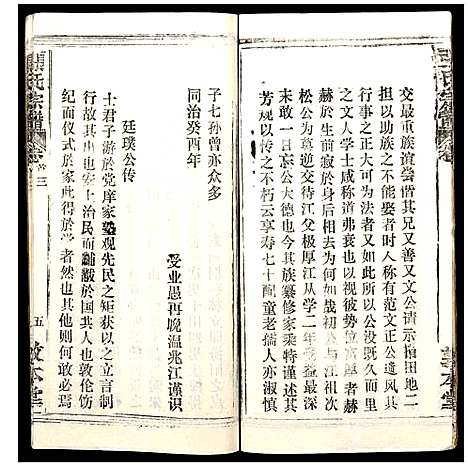 交最重族誼崇儒又善又文公請于捐田地二
担以助族之不能娶者时人称有范文正公遺风其
行事之正大可为法者又如此所以公没既久而里
之人文学士咸称道弗衰也以视彼势位富厚者赫
赫於生前寂於身后相去为何如哉初公与江祖
松公为莫逆交待江父极厚江从学二年受益最深
未敢一日忘公大德也今其族纂修家乘特谨述其
芳规以传之不朽云享寿七十配童老孺人亦淑慎
子七孙曾亦众多
同治癸酉年
受业愚再晚温兆江谨识
廷璞公传
士君子游於党庠家塾观先民之矩获以之立言制
行故其出也安上治民而黼黻於国其人也敦伦饬
纪而仪式於家此得於学者然也其他则何敢必焉
氏宗譜
卷首三
五
敦本堂